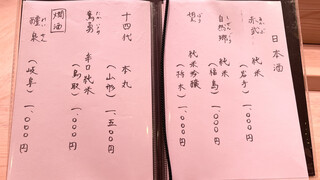 日本酒
赤武 純米 (岩手) 一、〇〇〇円
自然郷 純米 (福島) 一、〇〇〇円
純米吟醸 (栃木) 一、〇〇〇円
十四代 本丸 (山形) 一、五〇〇円
辛口純米 (鳥取) 一、〇〇〇円
燗酒
醴泉 (岐阜) 一、〇〇〇円